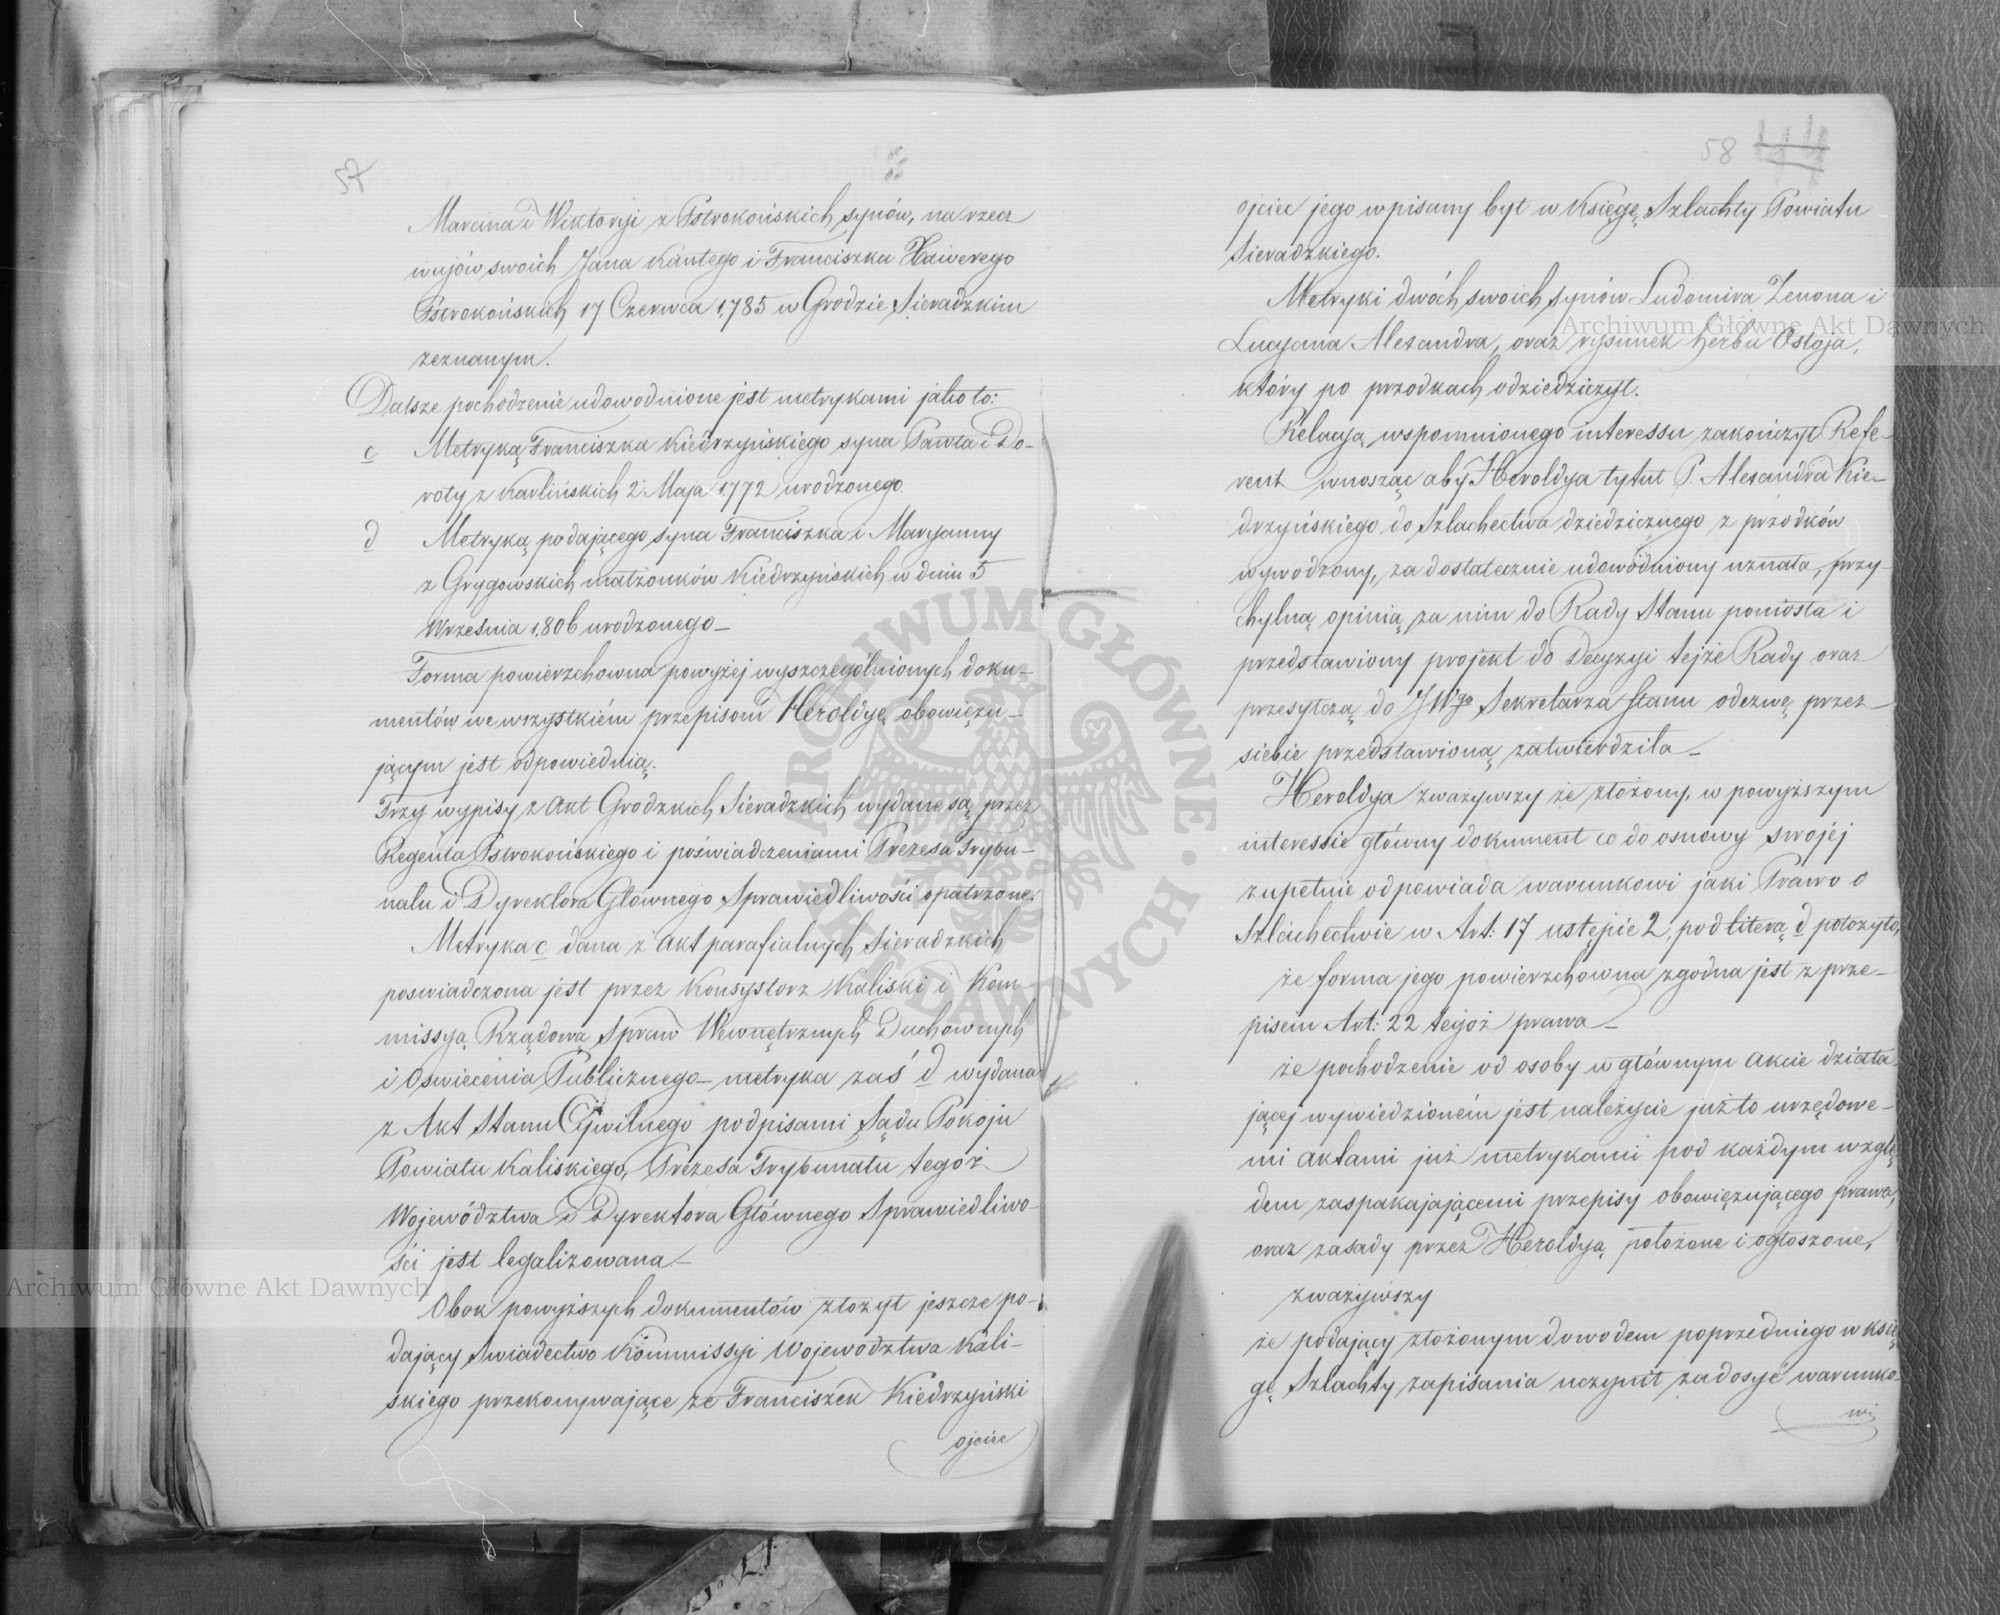 57
Marcina i Wiktoryi z Pstrokońskich synów, na rzecz
wujów swoich Jana Kantego i Franciszka Xawerego
Pstrokońskich 17 Czerwca 1785 w Grodzie Sieradzkim
zeznanym.
Dalsze pochodzenie udowodnione jest metrykami jako to:
c Metryką Franciszka Kiedrzyńskiego syna Pawła i Do-
roty z Karlińskich 2 Maja 1772 urodzonego
d Metryką podającego syna Franciszka i Maryanny
z Grygowskich małżonków Kiedrzyńskich w dniu 5
Września 1806 urodzonego –
Forma powierzchowna powyżej wyszczególnionych doku-
mentów we wszystkiém przepisom Heroldyę obowięzu-
jącym jest odpowiednią.
Trzy wypisy z Akt Grodzkich Sieradzkich wydane są przez
Regenta Pstrokońskiego i poświadczeniami Prezesa Trybu-
nału i Dyrektora Głównego Sprawiedliwości opatrzone.
Metryka c dana z Akt parafialnych Sieradzkich
poswiadczona jest przez Konsystorz Kaliski i Kom-
missyą Rządową Spraw Wewnętrznych Duchownych
i Oswiecenia Publicznego – metryka zaś d wydana
z Akt Stanu Cywilnego podpisami Sądu Pokoju
Powiatu Kaliskiego, Prezesa Trybunału tegoż
Województwa i Dyrektora Głównego Sprawiedliwo-
ści jest legalizowana –
Obok powyższych dokumentów złożył jeszcze po-
dający Swiadectwo Kommissyi Wojewodztwa Kali-
skiego przekonywające że Franciszek Kiedrzyński
ojciec
58
ojciec jego wpisany był w Księgę Szlachty Powiatu
Sieradzkiego.
Metryki dwóch swoich synów Ludomira Zenona i
Lucyana Alexandra, oraz rysunek herbu Ostoja,
który po przodkach odziedziczył.
Relacyą wspomnionego interessu zakończył Refe-
rent wnosząc aby Heroldya tytuł P. Alexandra Kie-
drzyńskiego do Szlachectwa dziedzicznego z przodków
wywodzony, za dostatecznie udowódniony uznała, przy-
chylną opinią za nim do Rady Stanu poniosła i
przedstawiony projekt do Decyzyi tejże Rady oraz
przesyłczą do JWgo Sekretarza Stanu odezwę przez
siebie przedstawioną zatwierdziła –
Heroldya zważywszy że złożony, w powyższym
interessie główny dokument co do osnowy swojéj
zupełnie odpowiada warunkowi jaki Prawo o
Szlachectwie w Art: 17 ustępie 2, pod literą d położyło,
że forma jego powierzchowna zgodna jest z prze-
pisem Art: 22 tegoż prawa –
że pochodzenie od osoby w głównym akcie działa-
jącej wywiedzioném jest należycie już to urzędowe-
mi aktami już metrykami pod każdym wzglę-
dem zaspakajającemi przepisy obowięzującego prawa,
oraz zasady przez Heroldyą położone i ogłoszone,
zważywszy
że podający złożonym dowodem poprzedniego w Księ-
gę Szlachty zapisania uczynił zadosyć warunko-
wi
Archiwum Główne Akt Dawnych
Archiwum Główne Akt Dawnych
ARCHIWUM GŁÓWNE AKT DAWNYCH